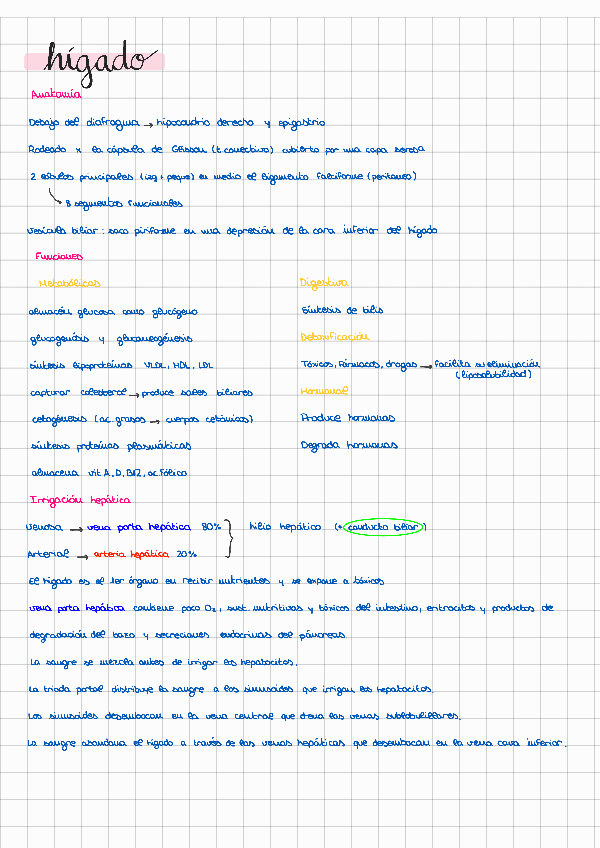 hígado
Anatomía
Debajo del diafragma → hipocondrio derecho y epigastrio
Rodeado x la cápsula de Glisson (t. conectivo) cubierto por una capa serosa
2 lóbulos principales (izq + peque) en medio el ligamento falciforme (peritoneo)
↳ 8 segmentos funcionales
Vesícula biliar: saco piriforme en una depresión de la cara inferior del hígado
Funciones
Metabólicas
almacén glucosa como glucógeno
glucogenólisis y gluconeogénesis
síntesis lipoproteínas VLDL, HDL, LDL
capturar colesterol → produce sales biliares
cetogénesis (ac. grasos → cuerpos cetónicos)
síntesis proteínas plasmáticas
almacena vit A, D, B12, ac. fólico
Digestiva
Síntesis de bilis
Detoxificación
Tóxicos, fármacos, drogas → facilita su eliminación
(liposolubilidad)
Hormonal
Produce hormonas
Degrada hormonas
Irrigación hepática
Venosa → vena porta hepática 80%
Arterial → arteria hepática 20%
hilio hepático (+ conducto biliar)
El hígado es el 1er órgano en recibir nutrientes y se expone a tóxicos
vena porta hepática contiene poco O2, sust. nutritivas y tóxicos del intestino, eritrocitos y productos de
degradación del bazo y secreciones endocrinas del páncreas
La sangre se mezcla antes de irrigar los hepatocitos.
La triada portal distribuye la sangre a los sinusoides que irrigan los hepatocitos.
Los sinusoides desembocan en la vena central que drena las venas sublobulillares.
La sangre abandona el hígado a través de las venas hepáticas que desembocan en la vena cava inferior.